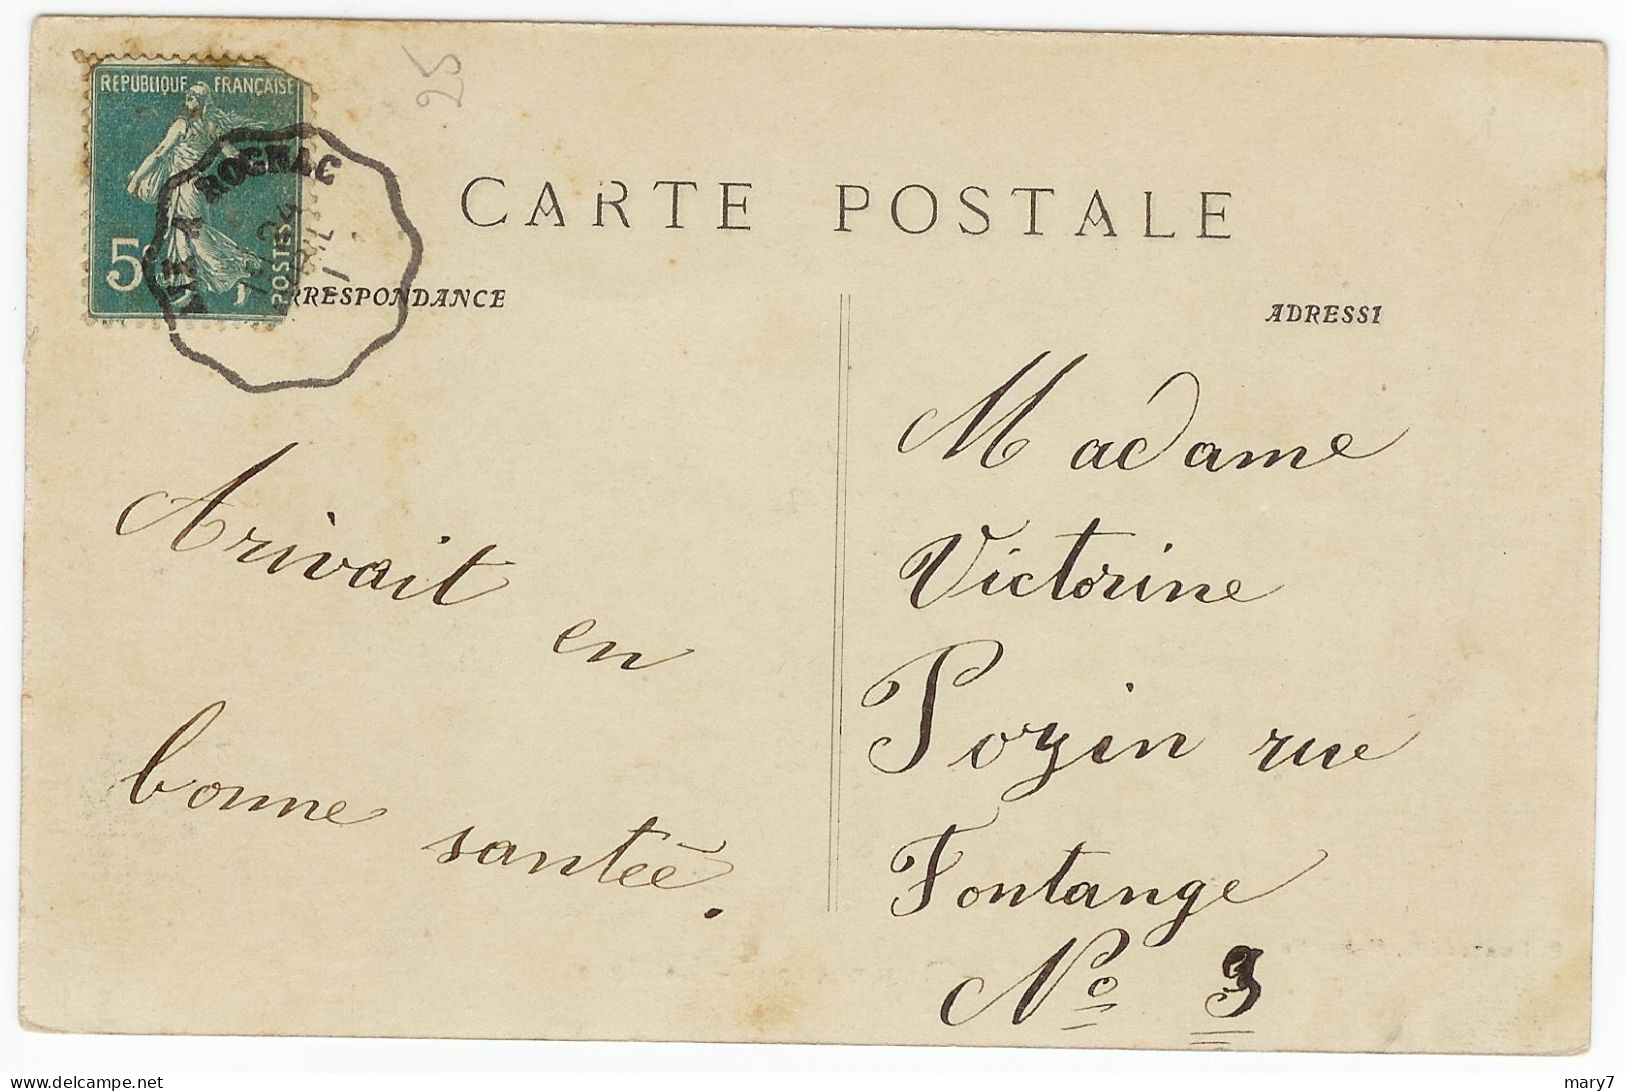 25
REPUBLIQUE FRANÇAISE
5c
POSTES
AIX A ROGNAC
24
CARTE POSTALE
RRESPONDANCE
ADRESSE
Arivait
en
bonne
santée.
Madame
Victorine
Pozin rue
Fontange
No 3
delcampe.net
mary7